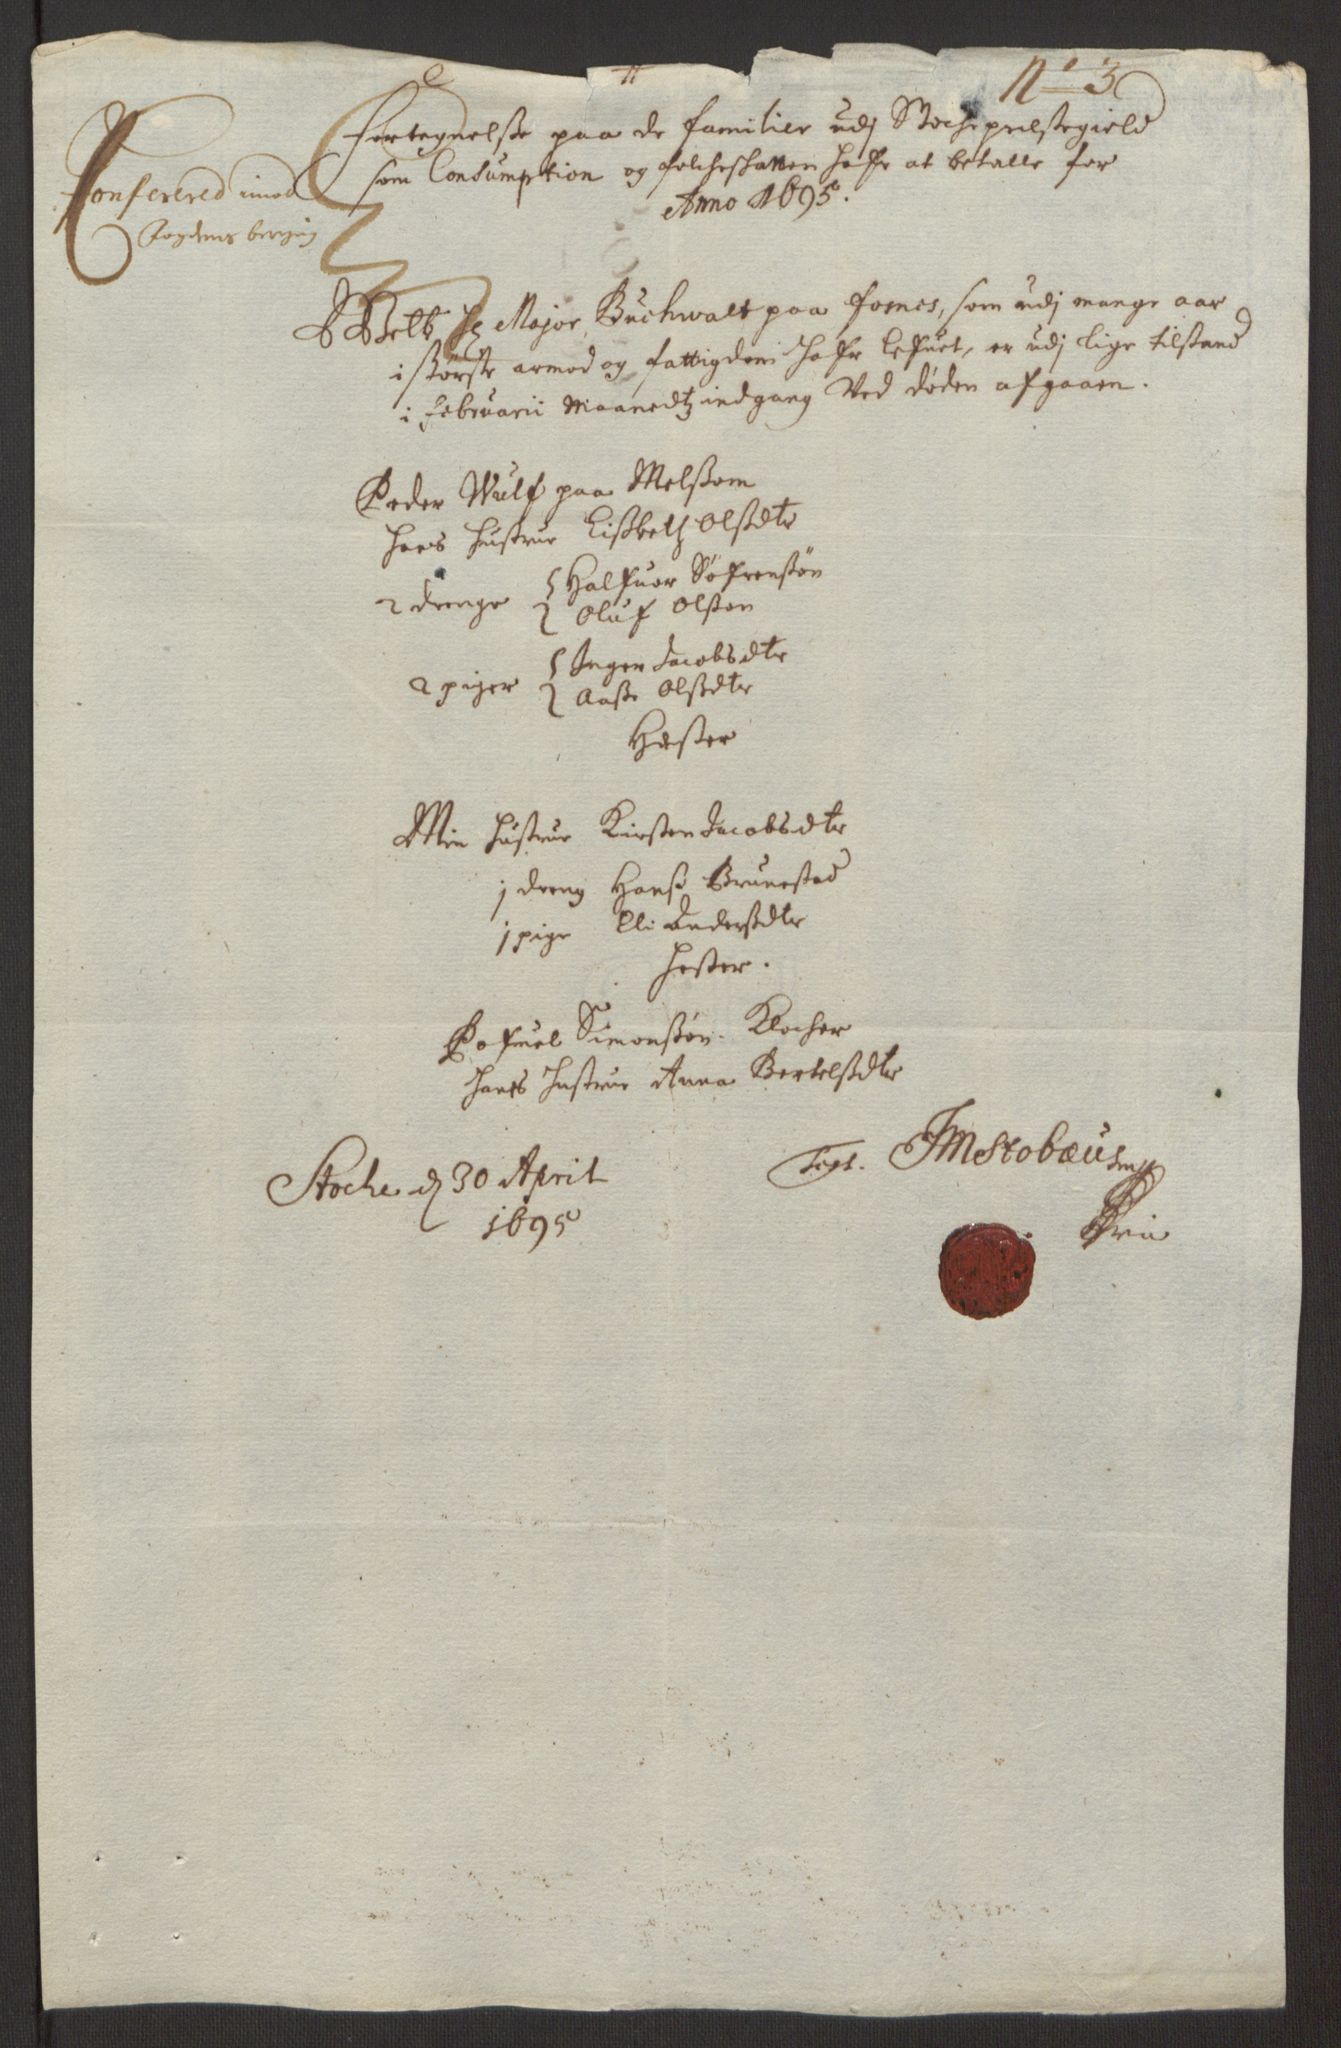 No 3
Fortegnelse paa de familier udj Stoche prelstegield
som Consumption og folcheschatten hafr at betalle for
Anno 1695.
Conferered imod
fogdens
Welb Hr Major Buchwalt paa Fosnes, som udj mange aar
i største armod og fattigdom hafr lefuet, er udj lige tilstand
i Februarii Maanedtz indgang Ved døden afgaaen.
Peder Wulf paa Melssom
Hans hustrue Lissbeth Olssdtr
2 drenge { Halfuor Søfrenssøn
{ Oluf Olssen
2 piger { Inger Jacobsdtr
{ Aasse Olssdtr
Hester
Min hustrue Kirsten Jacobsdtr
1 dreng Hanss Brunestad
1 pige Eli Anderssdtr
Hester.
Pofuel Simonssøn Klocher
Hans hustrue Anna Bertelssdtr
Stoche d 30 April
1695
Test. JMStobæus